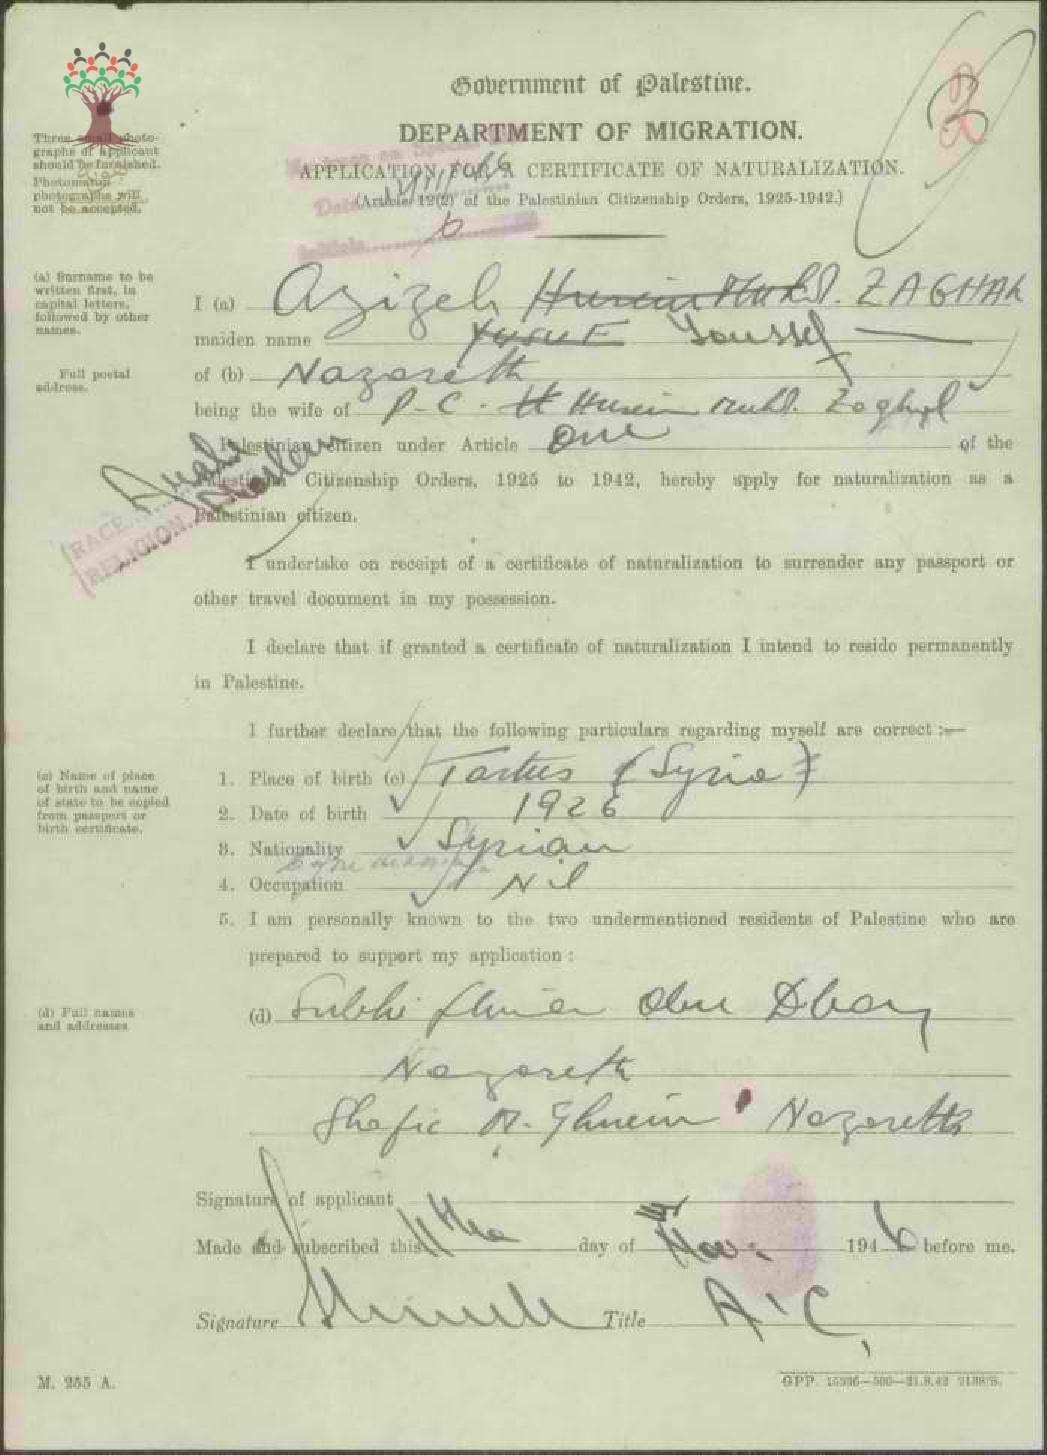 Government of Palestine.
DEPARTMENT OF MIGRATION.
APPLICATION FOR A CERTIFICATE OF NATURALIZATION.
(Article 12(2) of the Palestinian Citizenship Orders, 1925-1942.)
Three small photo-
graphs of applicant
should be furnished.
Photomaton
photographs will
not be accepted.
(a) Surname to be
written first, in
capital letters,
followed by other
names.
I (a) Azizeh Husein Muhd. ZAGHAL
maiden name Yusuf Youssef
Full postal
address.
of (b) Nazareth
being the wife of P.C. H Husein Muhd. Zaghal
a Palestinian citizen under Article one of the
Palestinian Citizenship Orders, 1925 to 1942, hereby apply for naturalization as a
Palestinian citizen.
RACE Arab
RELIGION Moslem
I undertake on receipt of a certificate of naturalization to surrender any passport or
other travel document in my possession.
I declare that if granted a certificate of naturalization I intend to reside permanently
in Palestine.
I further declare that the following particulars regarding myself are correct :—
(c) Name of place
of birth and name
of state to be copied
from passport or
birth certificate.
1. Place of birth (c) Tartus (Syria)
2. Date of birth 1926
3. Nationality Syrian
4. Occupation Nil
5. I am personally known to the two undermentioned residents of Palestine who are
prepared to support my application :
(d) Full names
and addresses
(d) Subhi Abu
Nazareth
Shafic Ghneim Nazareth
Signature of applicant
Made and subscribed this 11th day of Nov. 1946 before me.
Signature Title A.C.
M. 255 A.
GPP. 15336—500—21.8.42